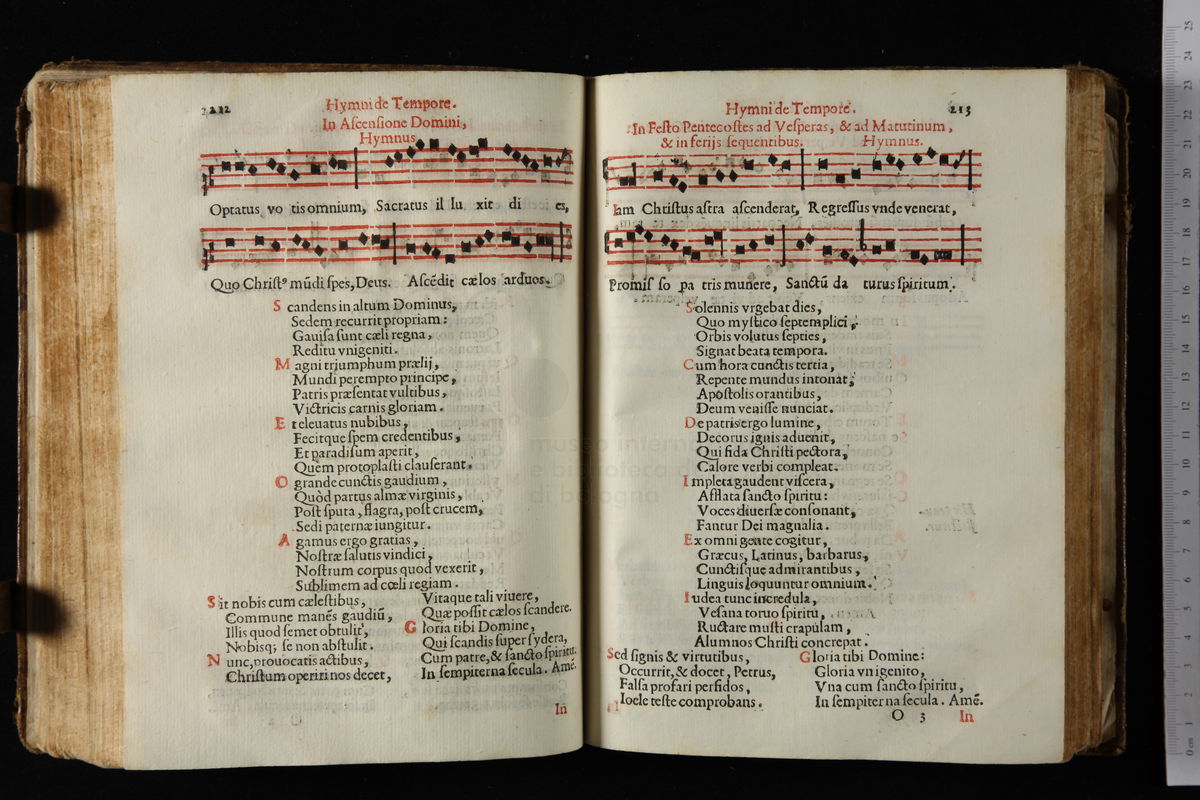 212
Hymni de Tempore.
In Ascensione Domini,
Hymnus.
Optatus vo tis omnium, Sacratus il lu xit di es,
Quo Christ⁹ mūdi spes, Deus. Ascēdit cælos arduos.
S candens in altum Dominus,
Sedem recurrit propriam:
Gauisa sunt cæli regna,
Reditu vnigeniti.
M agni triumphum prælij,
Mundi perempto principe,
Patris præsentat vultibus,
Victricis carnis gloriam.
E t eleuatus nubibus,
Fecitque spem credentibus,
Et paradisum aperit,
Quem protoplasti clauserant.
O grande cunctis gaudium,
Quòd partus almæ virginis,
Post sputa, flagra, post crucem,
Sedi paternæ iungitur.
A gamus ergo gratias,
Nostræ salutis vindici,
Nostrum corpus quod vexerit,
Sublimem ad cœli regiam.
S it nobis cum cælestibus,
Commune manēs gaudiū,
Illis quod semet obtulit,
Nobisq; se non abstulit.
N unc, prouocatis actibus,
Christum operiri nos decet,
Vitaque tali viuere,
Quæ possit cælos scandere.
G loria tibi Domine,
Qui scandis super sydera,
Cum patre, & sancto spiritu.
In sempiterna secula. Amē.
In
Hymni de Tempore.
213
In Festo Pentecostes ad Vesperas, & ad Matutinum,
& in ferijs sequentibus. Hymnus.
Iam Christus astra ascenderat, Regressus vnde venerat,
Promis so pa tris munere, Sanctū da turus spiritum.
Solennis vrgebat dies,
Quo mystico septemplici,
Orbis volutus septies,
Signat beata tempora.
Cum hora cunctis tertia,
Repente mundus intonat,
Apostolis orantibus,
Deum venisse nunciat.
De patris ergo lumine,
Decorus ignis aduenit,
Qui fida Christi pectora,
Calore verbi compleat.
Impleta gaudent viscera,
Afflata sancto spiritu:
Voces diuersæ consonant,
Fantur Dei magnalia.
Ex omni gente cogitur,
Græcus, Latinus, barbarus,
Cunctisque admirantibus,
Linguis loquuntur omnium.
Iudea tunc incredula,
Vesana toruo spiritu,
Ructare musti crapulam,
Alumnos Christi concrepat.
Sed signis & virtutibus,
Occurrit, & docet, Petrus,
Falsa profari perfidos,
Ioele teste comprobans.
Gloria tibi Domine:
Gloria vnigenito,
Vna cum sancto spiritu,
In sempiterna secula. Amē.
O 3
In
museo intern
e biblioteca d
di bologna